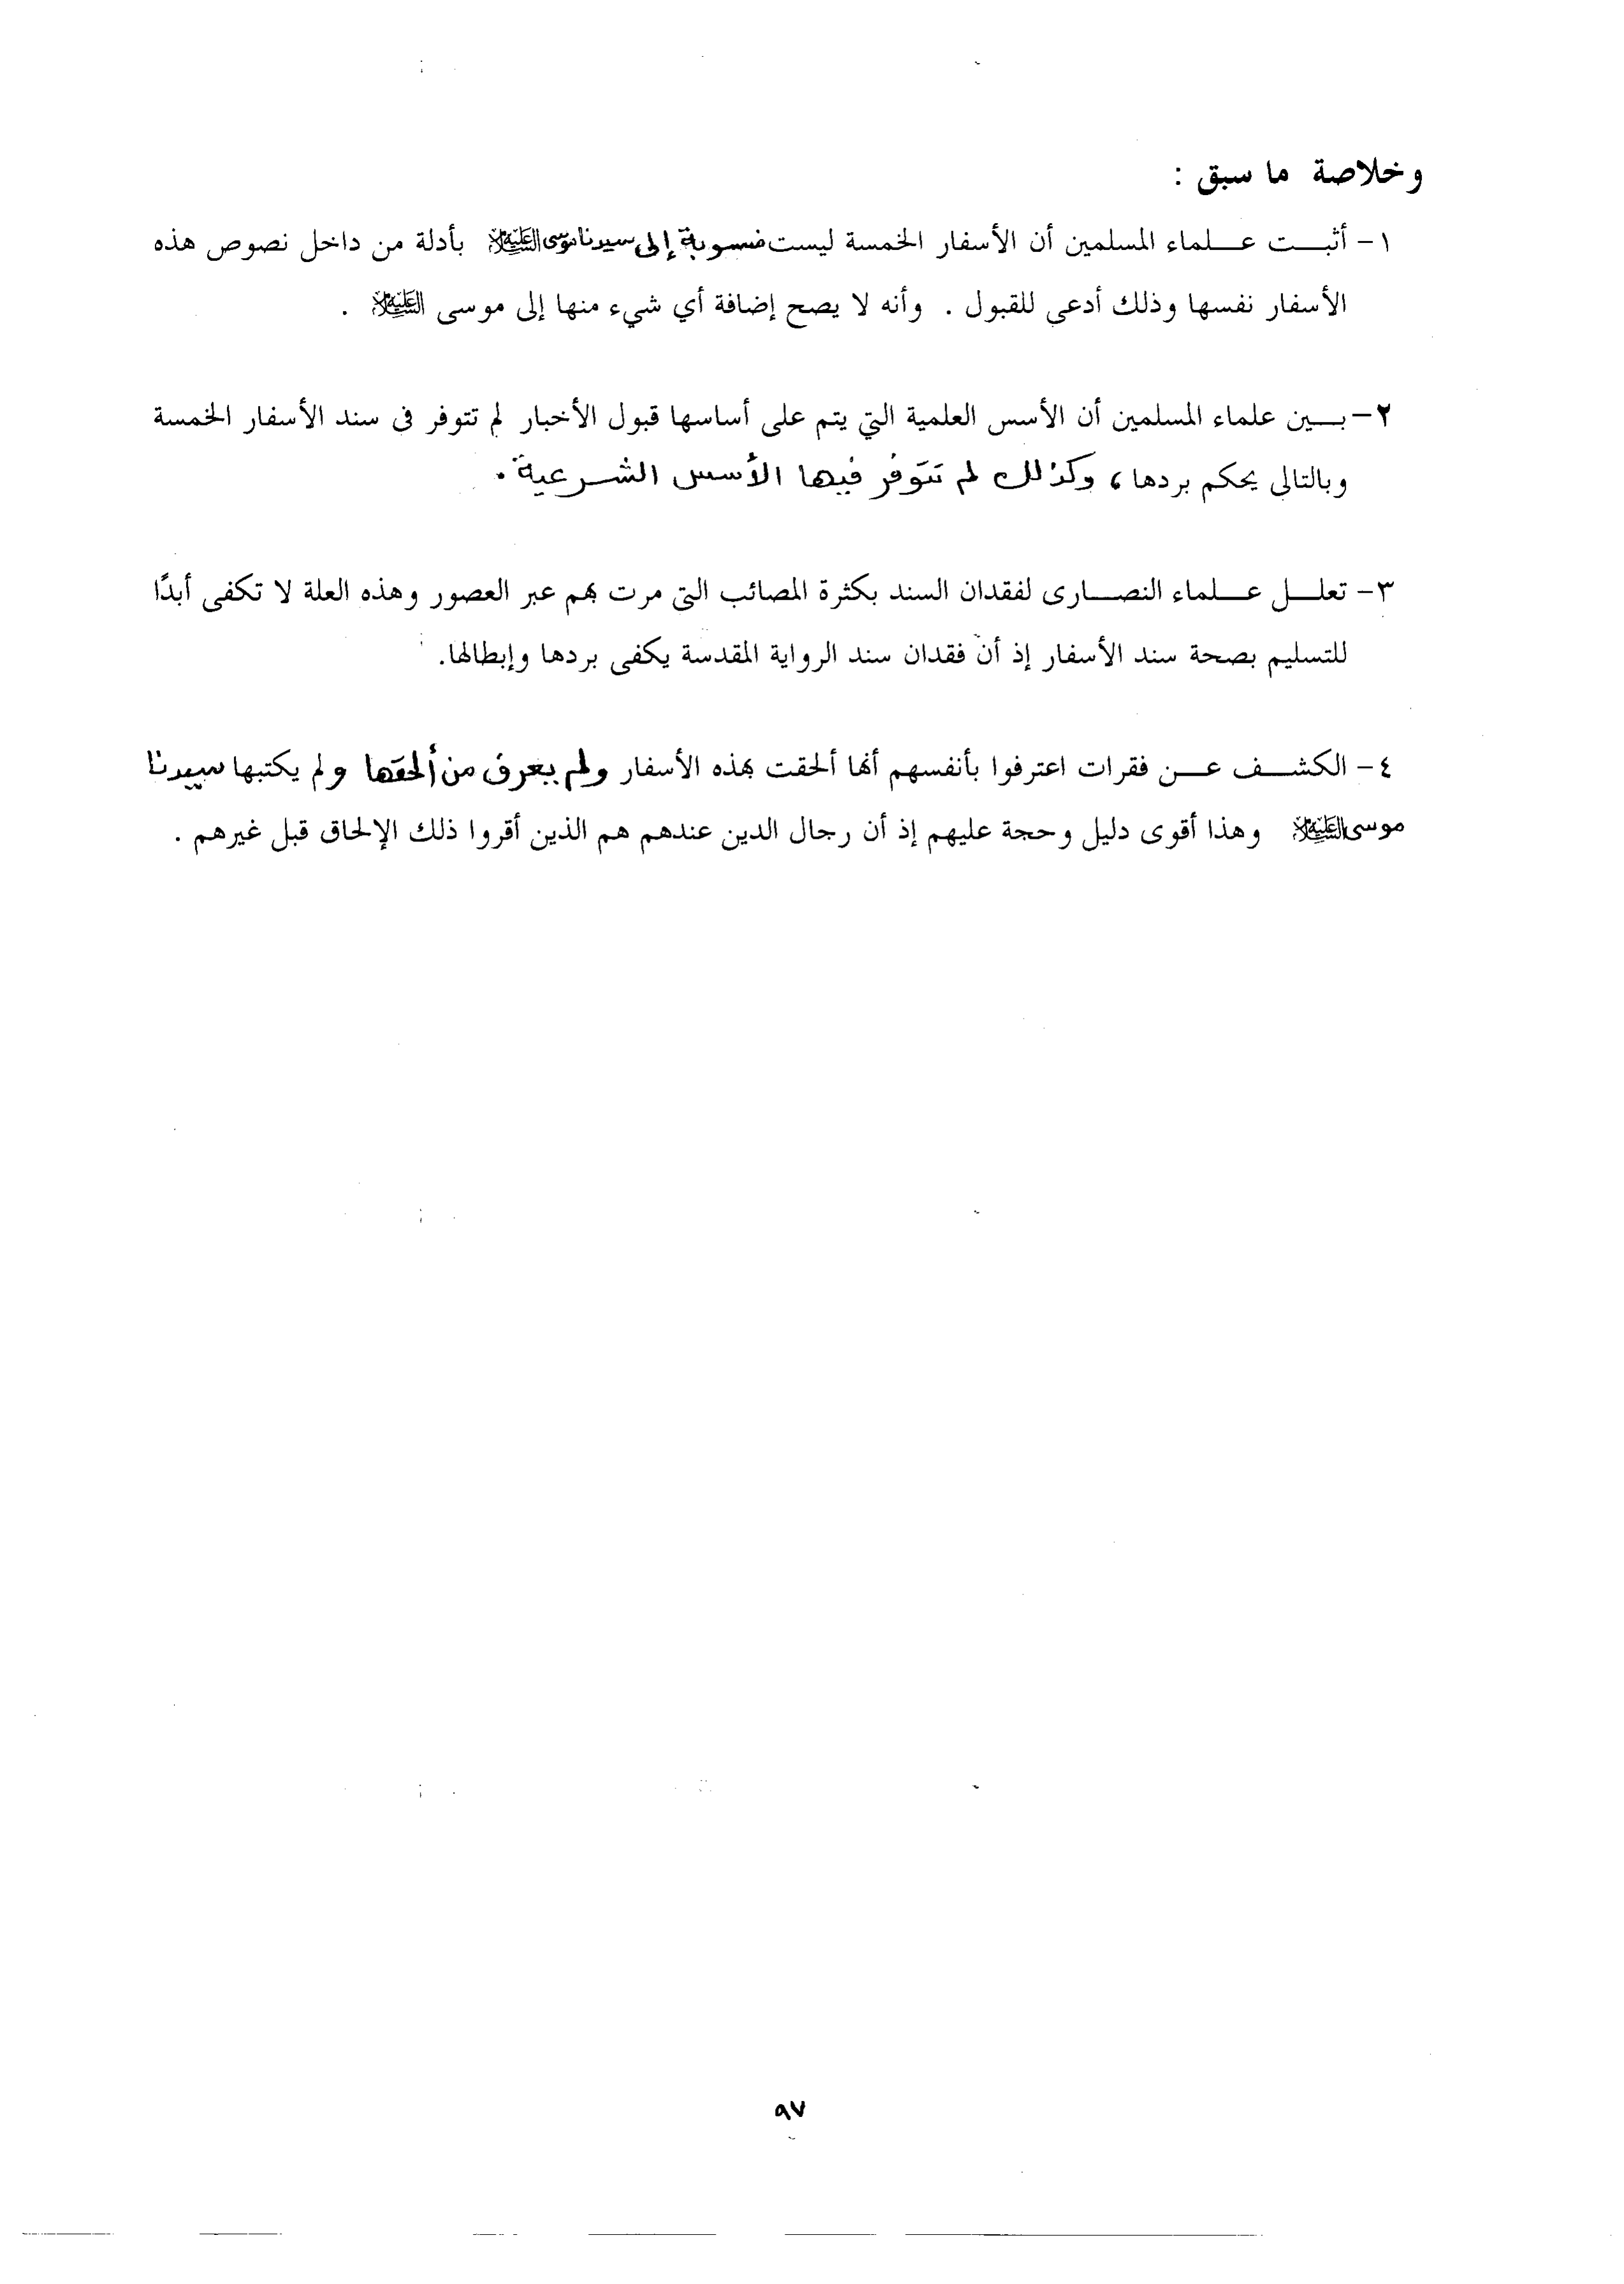 وخلاصة ما سبق :
١- أثبت علماء المسلمين أن الأسفار الخمسة ليست منسوبة إلى سيدنا موسى عليه السلام بأدلة من داخل نصوص هذه
الأسفار نفسها وذلك أدعى للقبول . وأنه لا يصح إضافة أي شيء منها إلى موسى عليه السلام .
٢- بين علماء المسلمين أن الأسس العلمية التي يتم على أساسها قبول الأخبار لم تتوفر فى سند الأسفار الخمسة
وبالتالى يحكم بردها، وكذلك لم تتوفر فيها الأسس الشرعية .
٣- تعلل علماء النصارى لفقدان السند بكثرة المصائب التى مرت بهم عبر العصور وهذه العلة لا تكفى أبدًا
للتسليم بصحة سند الأسفار إذ أن فقدان سند الرواية المقدسة يكفى بردها وإبطالها.
٤- الكشف عن فقرات اعترفوا بأنفسهم أنها ألحقت بهذه الأسفار ولم يعرف من ألحقها ولم يكتبها سيدنا
موسى عليه السلام وهذا أقوى دليل وحجة عليهم إذ أن رجال الدين عندهم هم الذين أقروا ذلك الإلحاق قبل غيرهم .
٩٧